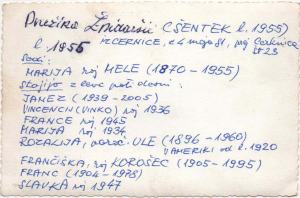 Družina Žnidaršič (ŠENTEK l. 1955)
l. 1955 
sedi:
MARIJA roj MELE (1870-1955)
stojijo z leve proti desni:
JANEZ (1939-2005)
VINCENCIJ (VINKO) roj 1936
FRANCE roj 1945
MARIJA roj 1934
ROZALIJA, poroč. ULE (1896-1960)
V AMERIKI od l. 1920
FRANČIŠKA, roj KOROŠEC (1905-1995)
FRANC (1904-1978)
SLAVKA roj 1947